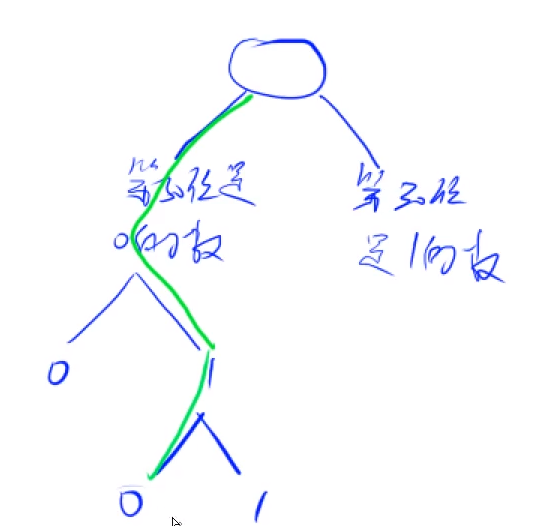 第30位是
0的数
第30位
是1的数
0
1
0
1